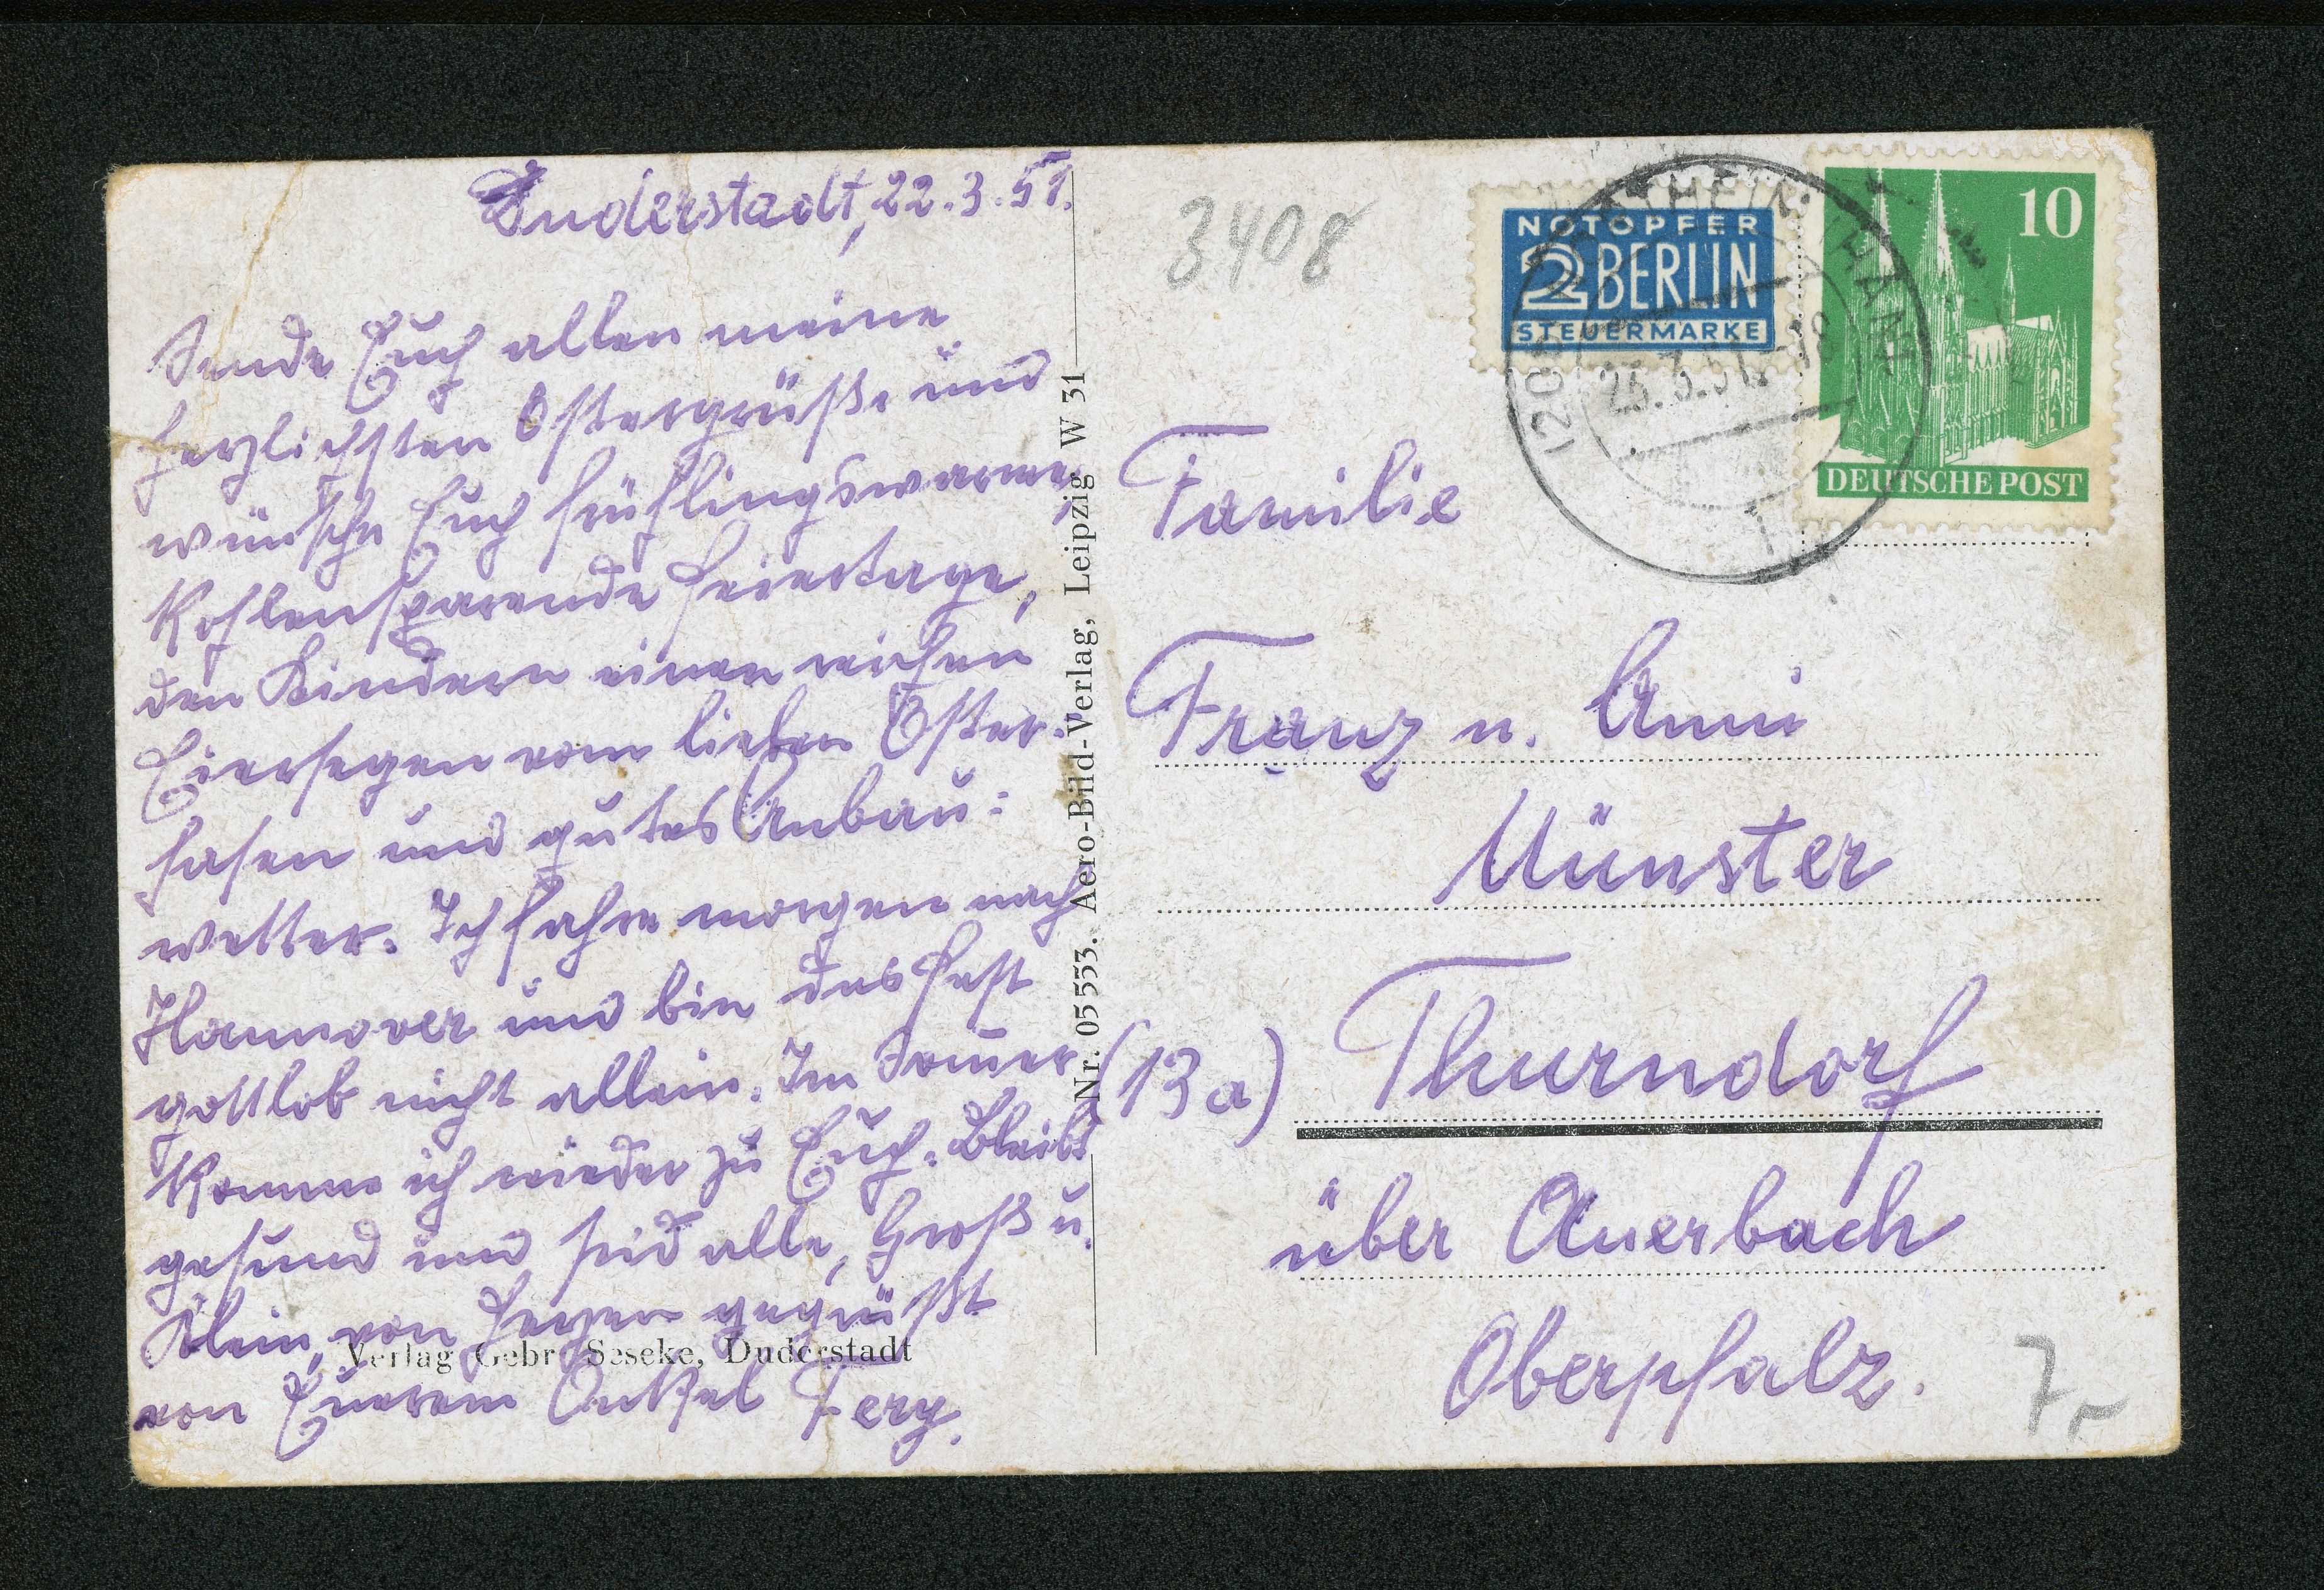 Duderstadt, 22.3.51.
Sende Euch allen meine
herzlichsten Ostergrüße und
wünsche Euch frühlingswarme,
Kohlensparende Feiertage,
den Kindern einen reichen
Eiersegen vom lieben Oster-
hasen und gutes Anbau=
wetter. Ich fahre morgen nach
Hannover und bin das Fest
gottlob nicht allein. Im Somer
komme ich wieder zu Euch. Bleibt
gesund und seid alle, Groß u.
Klein, von Herzen gegrüßt
von Euerem Onkel Fery.
Verlag Gebr. Seseke, Duderstadt
Nr. 05553. Aero-Bild-Verlag, Leipzig W 31
3408
NOTOPFER
2 BERLIN
STEUERMARKE
10
DEUTSCHE POST
(20
23.3.51.-18
Familie
Franz u. Anni
Münster
(13a) Thurndorf
über Auerbach
Oberpfalz.
7,-